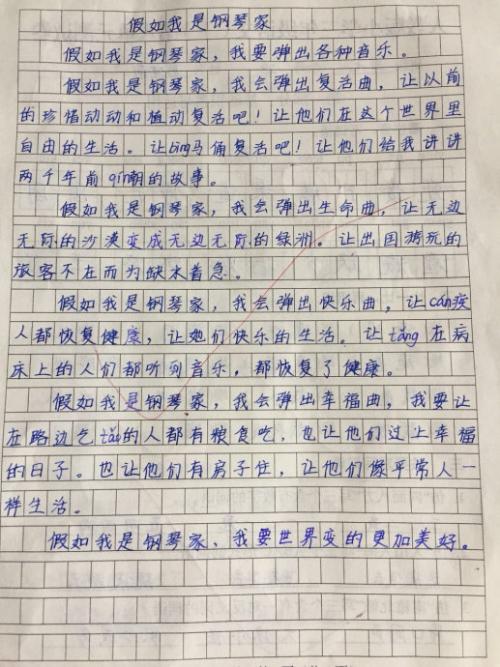 假如我是钢琴家
假如我是钢琴家，我要弹出各种音乐。
假如我是钢琴家，我会弹出复活曲，让以前
的珍惜动动和植动复活吧！让他们在这个世界里
自由的生活。让bīng马俑复活吧！让他们给我讲讲
两千年前qín朝的故事。
假如我是钢琴家，我会弹出生命曲，让无边
无际的沙漠变成无边无际的绿洲。让出国游玩的
旅客不在而为缺水着急。
假如我是钢琴家，我会弹出快乐曲，让cán疾
人都恢复健康，让她们快乐的生活。让tǎng在病
床上的人们都听到音乐，都恢复了健康。
假如我是钢琴家，我会弹出幸福曲，我要让
在路边乞tǎo的人都有粮食吃，也让他们过上幸福
的日子。也让他们有房子住，让他们像平常人一
样生活。
假如我是钢琴家、我要世界变的更加美好。